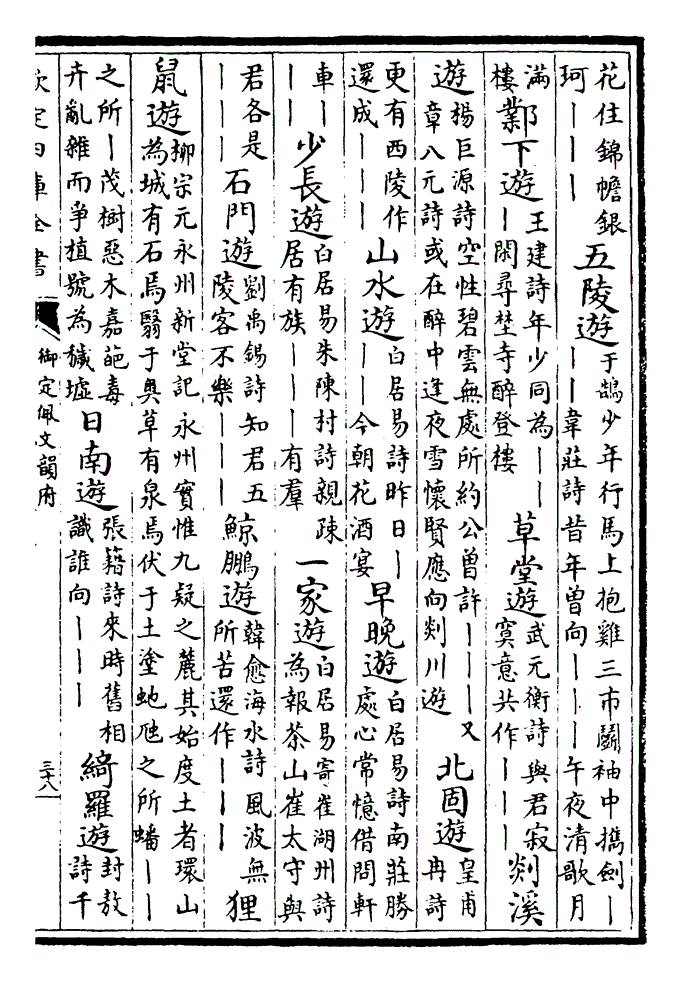 花住錦幨銀珂｜｜｜ 五陵遊 于鵠少年行馬上抱雞三市鬬袖中擕劍｜｜｜韋莊詩昔年曾向｜｜｜午夜清歌月
滿樓 鄴下遊 王建詩年少同為｜｜｜閑尋埜寺醉登樓 草堂遊 武元衡詩與君寂寞意共作｜｜｜ 剡溪
遊 楊巨源詩空性碧雲無處所約公曾許｜｜｜又章八元詩或在醉中逢夜雪懷賢應向剡川遊 北固遊 皇甫冉詩
更有西陵作還成｜｜｜ 山水遊 白居易詩昨日｜｜｜今朝花酒宴 早晚遊 白居易詩南莊勝處心常憶借問軒
車｜｜｜ 少長遊 白居易朱陳村詩親疎居有族｜｜｜有羣 一家遊 白居易寄崔湖州詩為報茶山崔太守與
君各是｜｜｜ 石門遊 劉禹錫詩知君五陵客不樂｜｜｜ 鯨鵬遊 韓愈海水詩風波無所苦還作｜｜｜ 狸
鼠遊 柳宗元永州新堂記永州實惟九疑之麓其始度土者環山為城有石焉翳于奥草有泉焉伏于土塗虵虺之所蟠｜｜
之所｜茂樹惡木嘉葩毒卉亂雜而爭植號為穢墟 日南遊 張籍詩來時舊相識誰向｜｜｜ 綺羅遊 封敖詩千
欽定四庫全書 御定佩文韻府 三十八